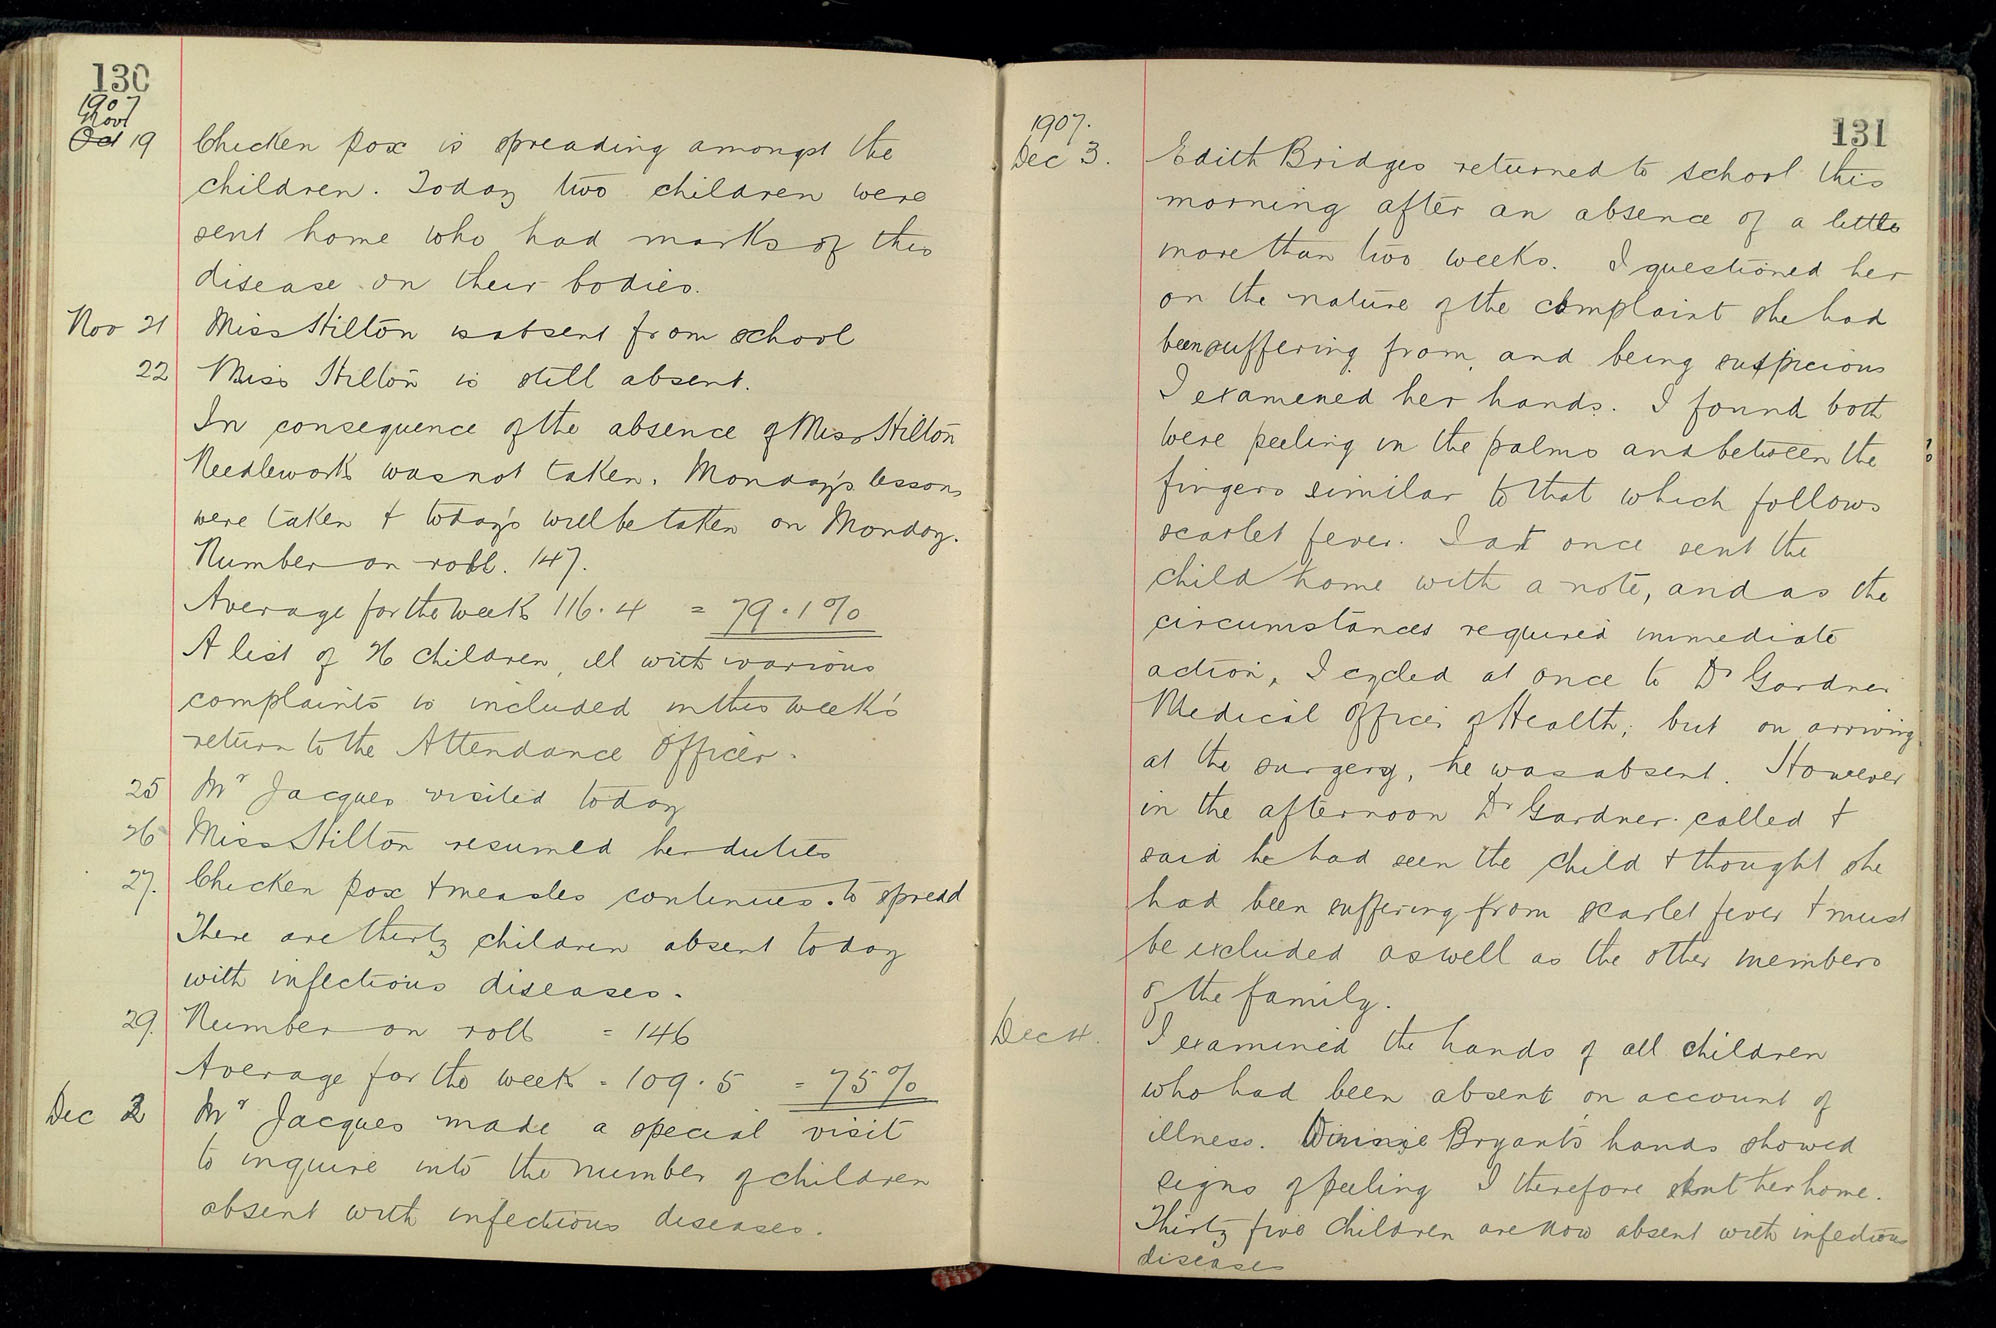 130
1907
Nov
Oct 19 Chicken pox is spreading amongst the
children. Today two children were
sent home who had marks of this
disease on their bodies.
Nov 21 Miss Hilton is absent from school
22 Miss Hilton is still absent.
In consequence of the absence of Miss Hilton
Needlework was not taken. Monday's lessons
were taken & today's will be taken on Monday.
Number on roll. 147.
Average for the week 116.4 = 79.1%
A list of 26 children, ill with various
complaints is included in this week's
return to the Attendance Officer.
25 Mr Jacques visited today
26 Miss Hilton resumed her duties
27. Chicken pox & measles continues to spread
There are thirty children absent today
with infectious diseases.
29. Number on roll = 146
Average for the week = 109.5 = 75%
Dec 2 Mr Jacques made a special visit
to inquire into the number of children
absent with infectious diseases.
131
1907.
Dec 3. Edith Bridges returned to school this
morning after an absence of a little
more than two weeks. I questioned her
on the nature of the complaint she had
been suffering from, and being suspicious
I examened her hands. I found both
were peeling in the palms and between the
fingers similar to that which follows
scarlet fever. I at once sent the
child home with a note, and as the
circumstances required immediate
action, I cycled at once to Dr Gardner
Medical Officer of Health; but on arriving
at the surgery, he was absent. However
in the afternoon Dr Gardner called &
said he had seen the child & thought she
had been suffering from scarlet fever & must
be excluded as well as the other members
of the family.
Dec 4. I examined the hands of all children
who had been absent on account of
illness. Winnie Bryant's hands showed
signs of peeling I therefore sent her home.
Thirty five children are now absent with infectious
diseases